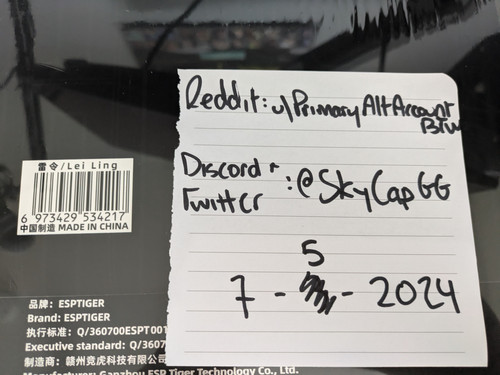 雷令/Lei Ling
6 973429 534217
中国制造 MADE IN CHINA
Reddit: u/PrimaryAltAccount
BTW
Discord +
Twitter : @SkyCapGG
5
7 - - 2024
品牌: ESPTIGER
Brand: ESPTIGER
执行标准: Q/360700ESPT001
Executive standard: Q/3607
制造商: 赣州竞虎科技有限公司
Manufacturer: Ganzhou ESP Tiger Technology Co., Ltd.